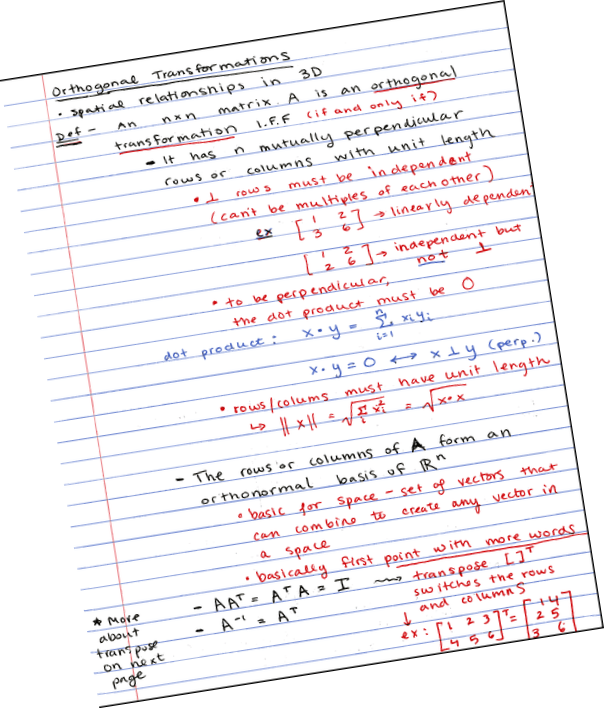 Orthogonal Transformations
• spatial relationships in 3D
Def - An nxn matrix A is an orthogonal
transformation I.F.F (if and only if)
- It has n mutually perpendicular
rows or columns with unit length
• ⊥ rows must be independent
(can't be multiples of each other)
ex [1 2
3 6] → linearly dependent
[1 2
2 6] → independent but
not ⊥
• to be perpendicular,
the dot product must be 0
dot product: x • y = Σⁿᵢ₌₁ xᵢyᵢ
x • y = 0 ↔ x ⊥ y (perp.)
• rows/colums must have unit length
↳ ||x|| = √Σᵢ xᵢ² = √x•x
- The rows or columns of A form an
orthonormal basis of ℝⁿ
• basic for space - set of vectors that
can combine to create any vector in
a space
• basically first point with more words
- AAᵀ = AᵀA = I ⇝ transpose [ ]ᵀ
switches the rows
and columns
- A⁻¹ = Aᵀ
↓
ex: [1 2 3
4 5 6]ᵀ = [1 4
2 5
3 6]
* More
about
transpose
on next
page